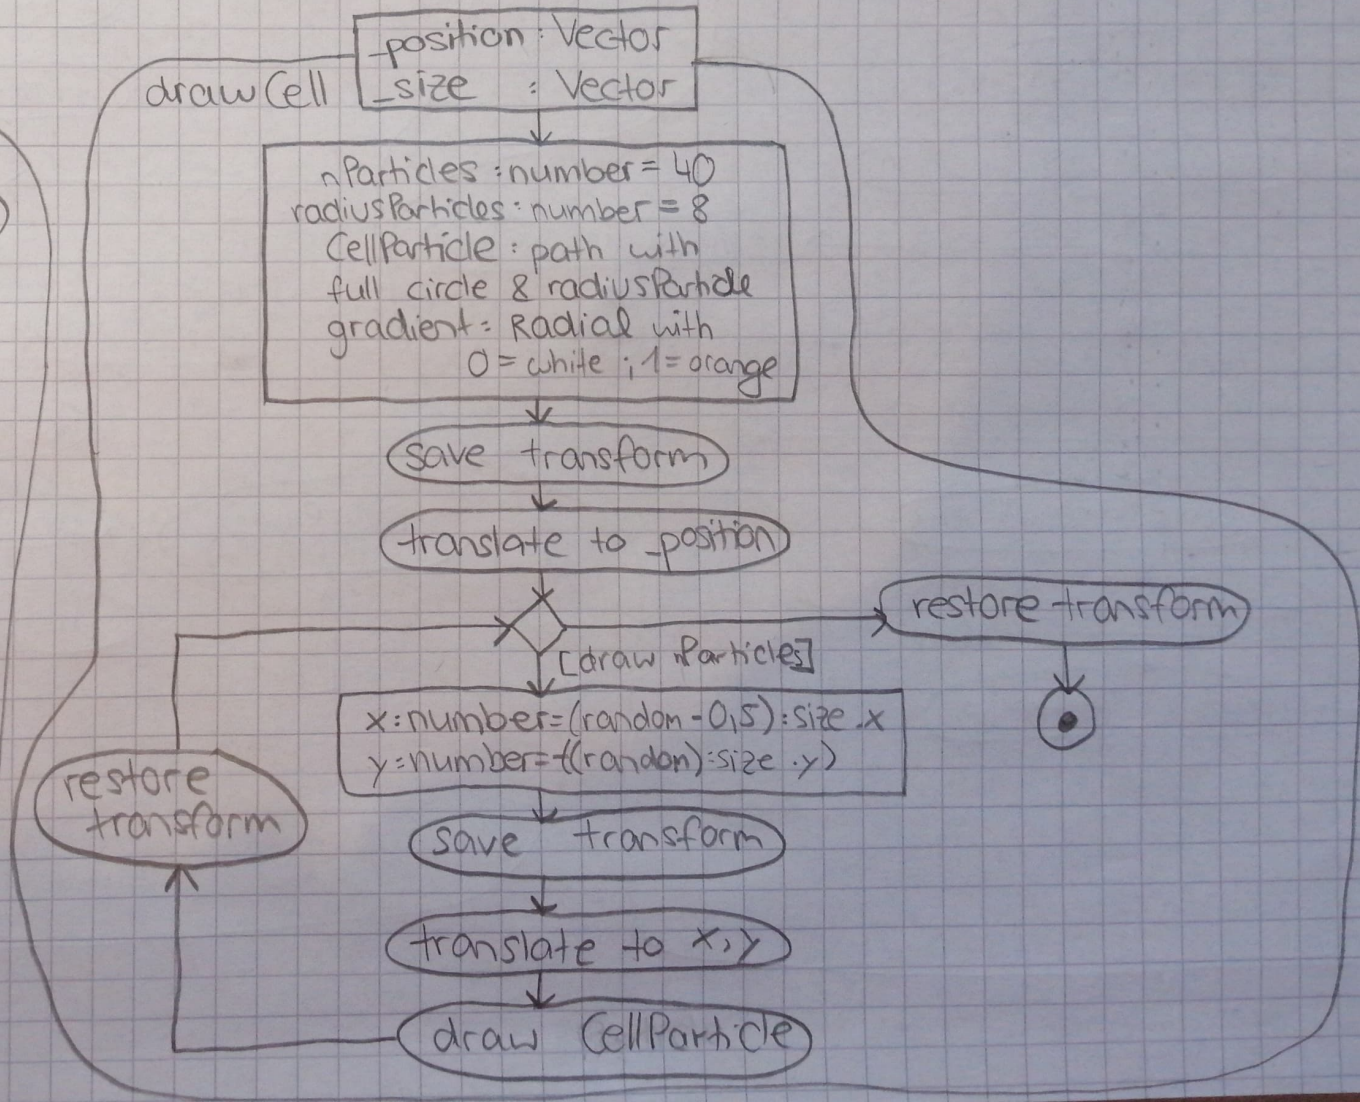 _position : Vector
drawCell
_size : Vector
nParticles : number = 40
radiusParticles : number = 8
CellParticle : path with
full circle & radiusParticle
gradient : Radial with
0 = white ; 1 = orange
save transform
translate to _position
restore transform
[draw nParticles]
x : number = (random - 0,5) : size . x
y : number = -((random) : size . y)
restore
transform
save transform
translate to x, y
draw CellParticle